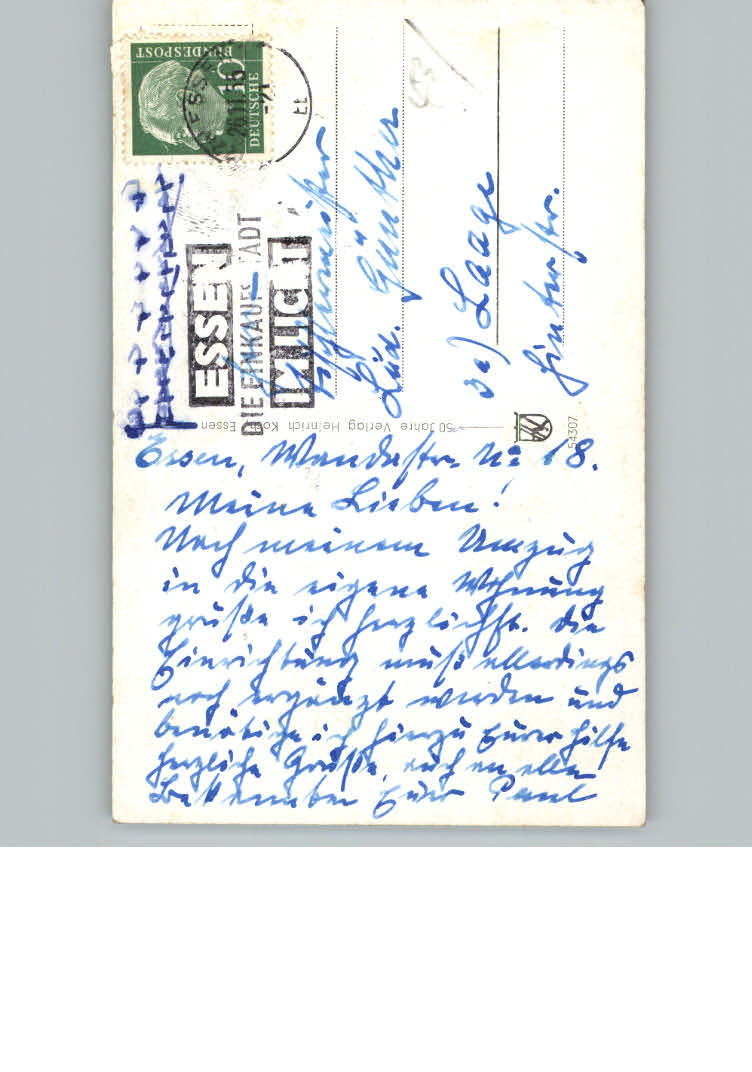 Essen, Wandastr. No 18.
Meine Lieben!
Nach meinem Umzug
in die eigene Wohnung
grüße ich herzlichst. Die
Einrichtung muß allerdings
noch ergänzt werden und
benötige ich hierzu Eurer Hilfe
herzliche Grüße, auch an alle
Bekannten Euer Paul
DEUTSCHE
BUNDESPOST
10
ESSEN
DIE EINKAUFSSTADT
Lüd. Günther
Laage
Hinterstr.
50 Jahre Verlag Heinrich Koch, Essen
54307